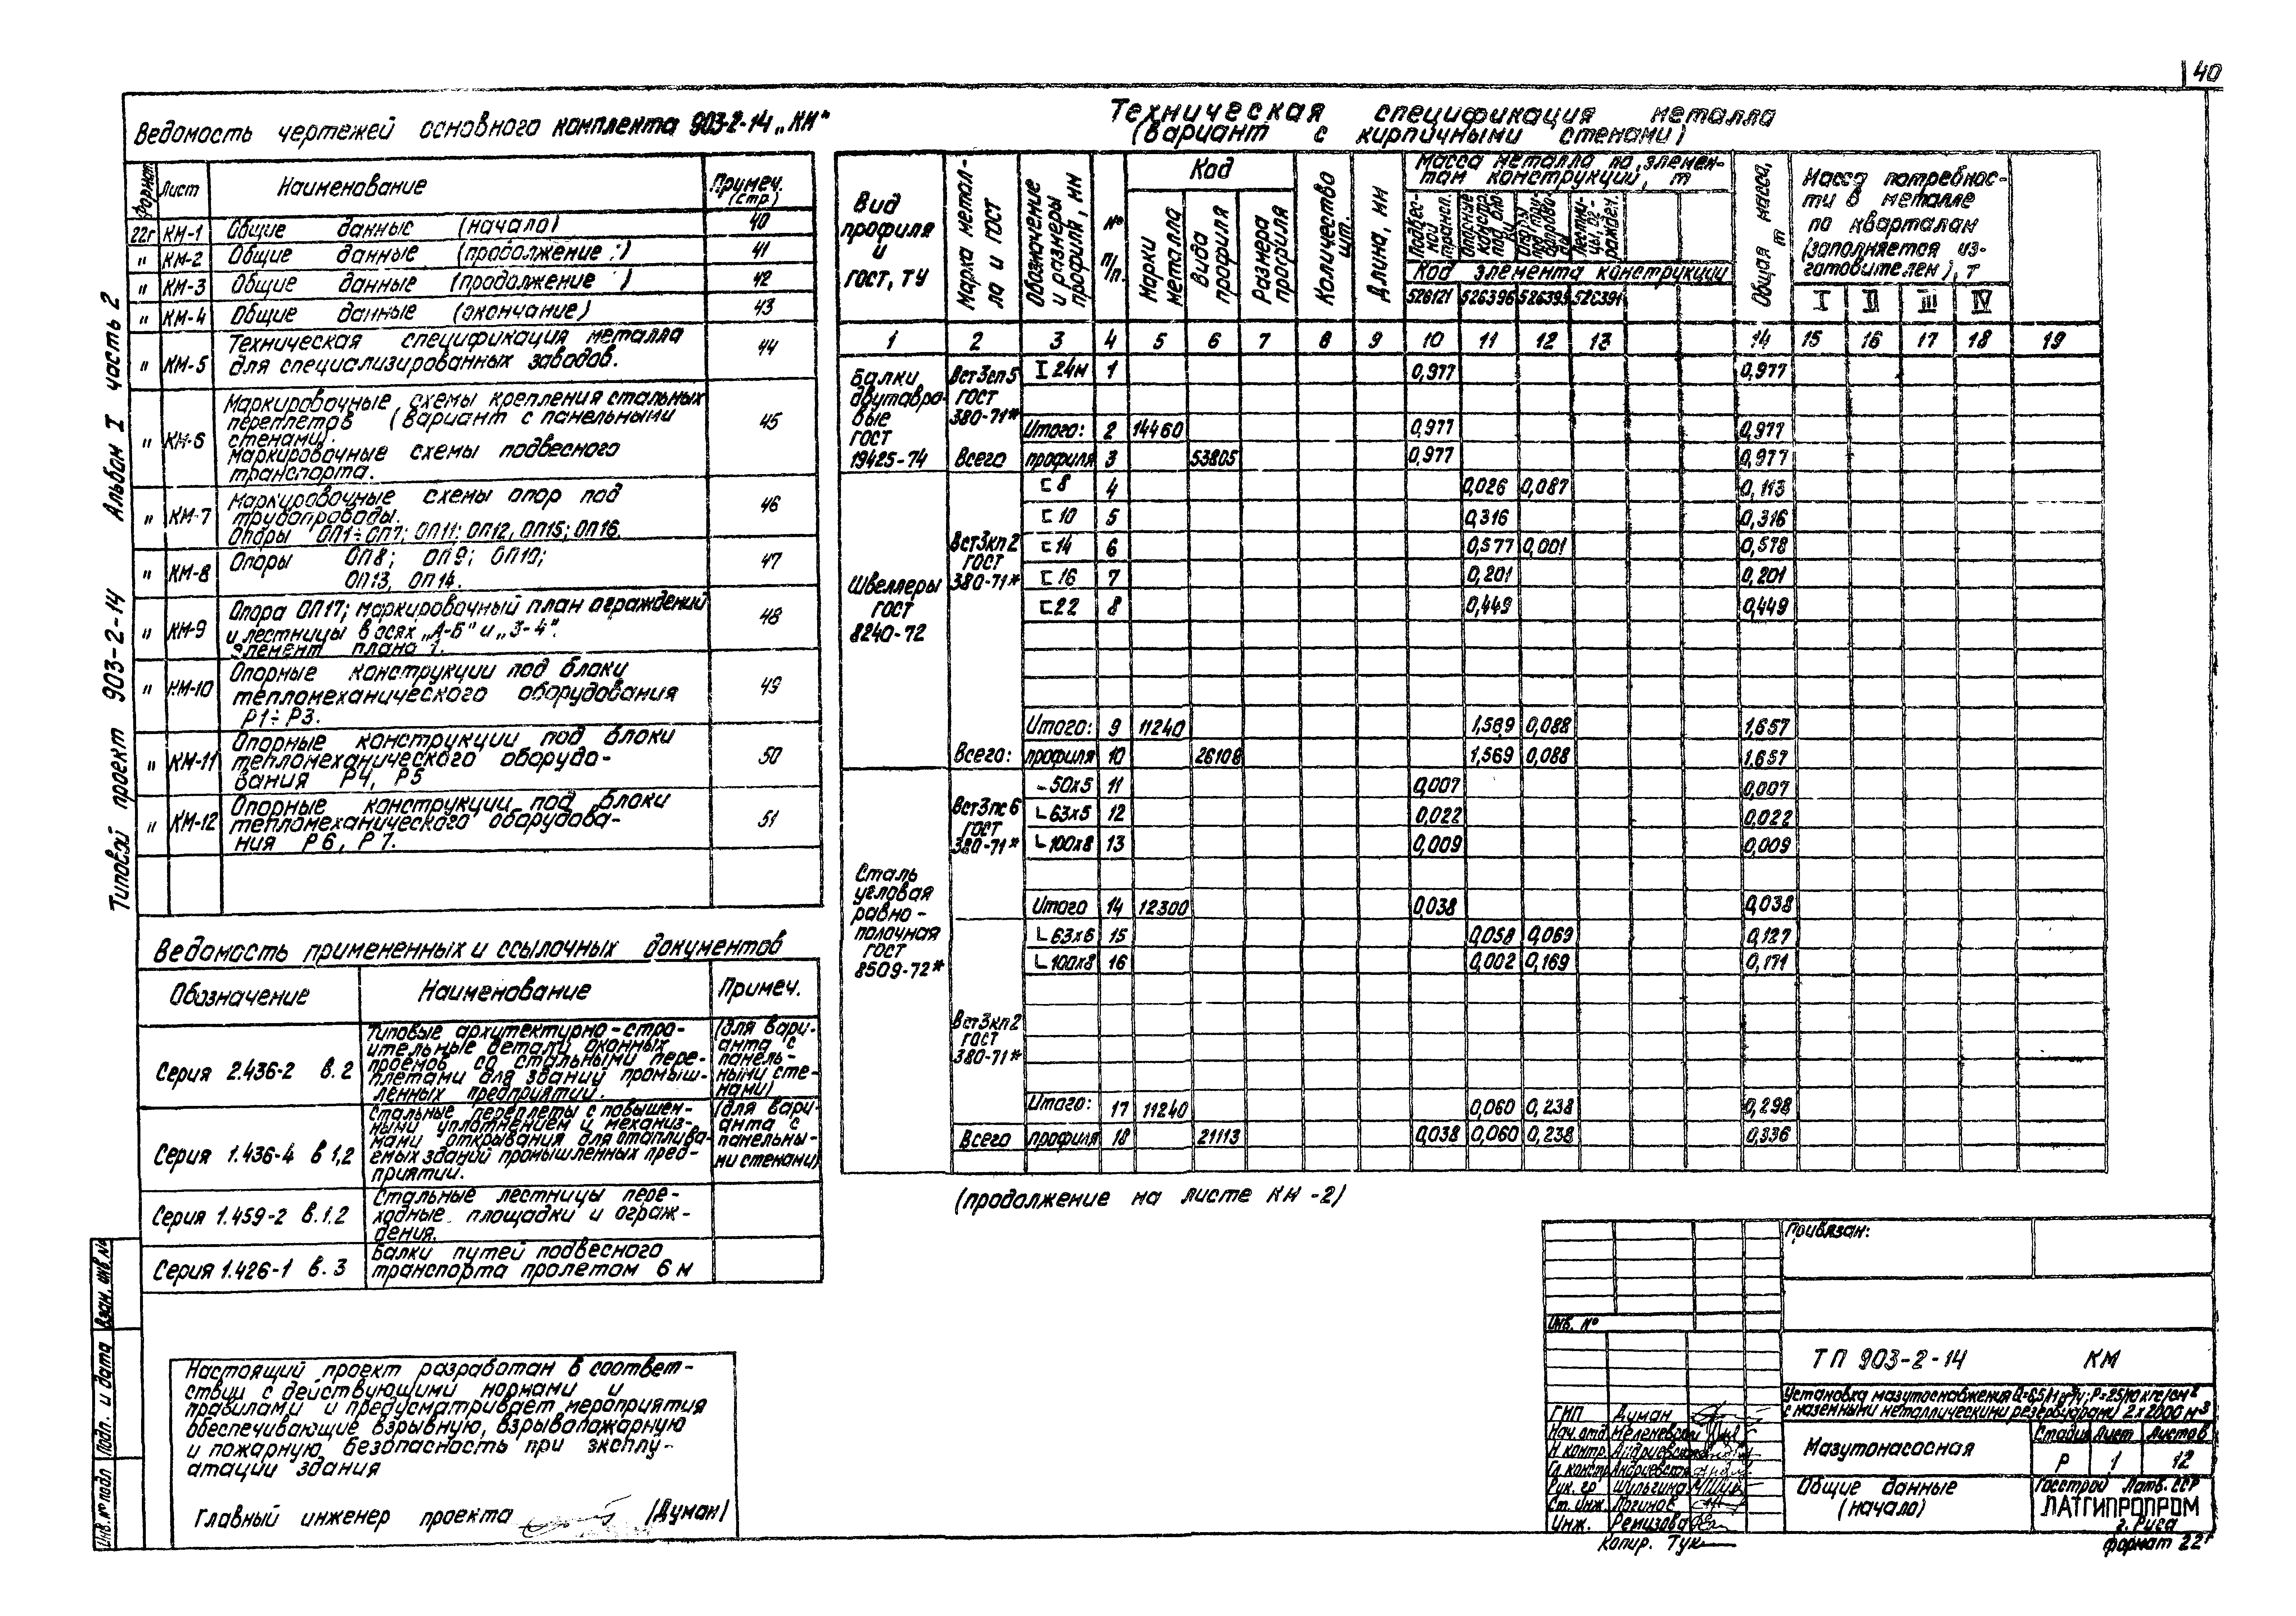 40
Ведомость чертежей основного комплекта 903-2-14 „КМ"
Формат Лист Наименование Примеч. (стр.)
22г КМ-1 Общие данные (начало) 40
" КМ-2 Общие данные (продолжение) 41
" КМ-3 Общие данные (продолжение) 42
" КМ-4 Общие данные (окончание) 43
" КМ-5 Техническая спецификация металла
для специализированных заводов. 44
" КМ-6 Маркировочные схемы крепления стальных
переплетов (вариант с панельными
стенами).
Маркировочные схемы подвесного
транспорта. 45
" КМ-7 Маркировочные схемы опор под
трубопроводы.
Опоры ОП1÷ОП7; ОП11; ОП12, ОП15; ОП16. 46
" КМ-8 Опоры ОП8; ОП9; ОП10;
ОП13, ОП14. 47
" КМ-9 Опора ОП17; маркировочный план ограждений
и лестницы в осях „А-Б" и „3-4".
элемент плана 1. 48
" КМ-10 Опорные конструкции под блоки
тепломеханического оборудования
Р1÷Р3. 49
" КМ-11 Опорные конструкции под блоки
тепломеханического оборудо-
вания Р4, Р5 50
" КМ-12 Опорные конструкции под блоки
тепломеханического оборудова-
ния Р6, Р7. 51
Ведомость примененных и ссылочных документов
Обозначение Наименование Примеч.
Серия 2.436-2 в.2 Типовые архитектурно-стро-
ительные детали оконных
проемов со стальными пере-
плетами для зданий промыш-
ленных предприятий.
(для вари-
анта с
панель-
ными сте-
нами)
Серия 1.436-4 в 1,2 Стальные переплеты с повышен-
ными уплотнением и механиз-
мами открывания для отаплива-
емых зданий промышленных пред-
приятий.
(для вари-
анта с
панельны-
ми стенами)
Серия 1.459-2 в.1,2 Стальные лестницы пере-
ходные площадки и ограж-
дения.
Серия 1.426-1 в. 3 Балки путей подвесного
транспорта пролетом 6 м
Настоящий проект разработан в соответ-
ствии с действующими нормами и
правилами и предусматривает мероприятия
обеспечивающие взрывную, взрывопожарную
и пожарную безопасность при эксплу-
атации здания
Главный инженер проекта (Думан)
Типовой проект 903-2-14 Альбом I часть 2
Инв. № подл Подп. и дата Взам. инв. №
Техническая спецификация металла
(вариант с кирпичными стенами)
Вид профиля и ГОСТ, ТУ
Марка метал-ла и ГОСТ
Обозначение и размеры профиля, мм
№ п/п.
Код
Марки металла
Вида профиля
Размера профиля
Количество шт.
Длина, мм
Масса металла по элемен-
там конструкций, т
Подвес-ной трансп.
Опорные констр. под бло
Лестни-цы ог-ражден.
Код элемента конструкции
526121 526396 526395 526391
Общая масса, т
Масса потребнос-
ти в металле
по кварталам
(заполняется из-
готовителем), т
I II III IV
1 2 3 4 5 6 7 8 9 10 11 12 13 14 15 16 17 18 19
Балки двутавро-вые ГОСТ 19425-74
Вст3сп5 ГОСТ 380-71*
I 24м 1 0,977 0,977
Итого: 2 14460 0,977 0,977
Всего профиля 3 53805 0,977 0,977
Швеллеры ГОСТ 8240-72
Вст3кп2 ГОСТ 380-71*
[ 8 4 0,026 0,087 0,113
[ 10 5 0,316 0,316
[ 14 6 0,577 0,001 0,578
[ 16 7 0,201 0,201
[ 22 8 0,449 0,449
Итого: 9 11240 1,569 0,088 1,657
Всего: профиля 10 26108 1,569 0,088 1,657
Сталь угловая равно-полочная ГОСТ 8509-72*
Вст3пс6 ГОСТ 380-71*
-50x5 11 0,007 0,007
L 63x5 12 0,022 0,022
L 100x8 13 0,009 0,009
Итого 14 12300 0,038 0,038
Вст3кп2 ГОСТ 380-71*
L 63x6 15 0,058 0,069 0,127
L 100x8 16 0,002 0,169 0,171
Итого: 17 11240 0,060 0,238 0,298
Всего профиля 18 21113 0,038 0,060 0,238 0,336
(продолжение на листе КМ-2)
Привязан:
Инв. №
ТП 903-2-14 КМ
Установка мазутоснабжения
с наземными металлическими резервуарами 2x2000 м³
Мазутонасосная
Стадия Лист Листов
Р 1 12
Общие данные
(начало)
Госстрой Латв. ССР
ЛАТГИПРОПРОМ
г. Рига
ГИП Думан
Нач. отд
Н. контр. Андриевская
Гл. констр Андриевская
Рук. гр Шильгина
Ст. инж. Логинов
Инж. Ремизова
Копир. Тук
формат 22г